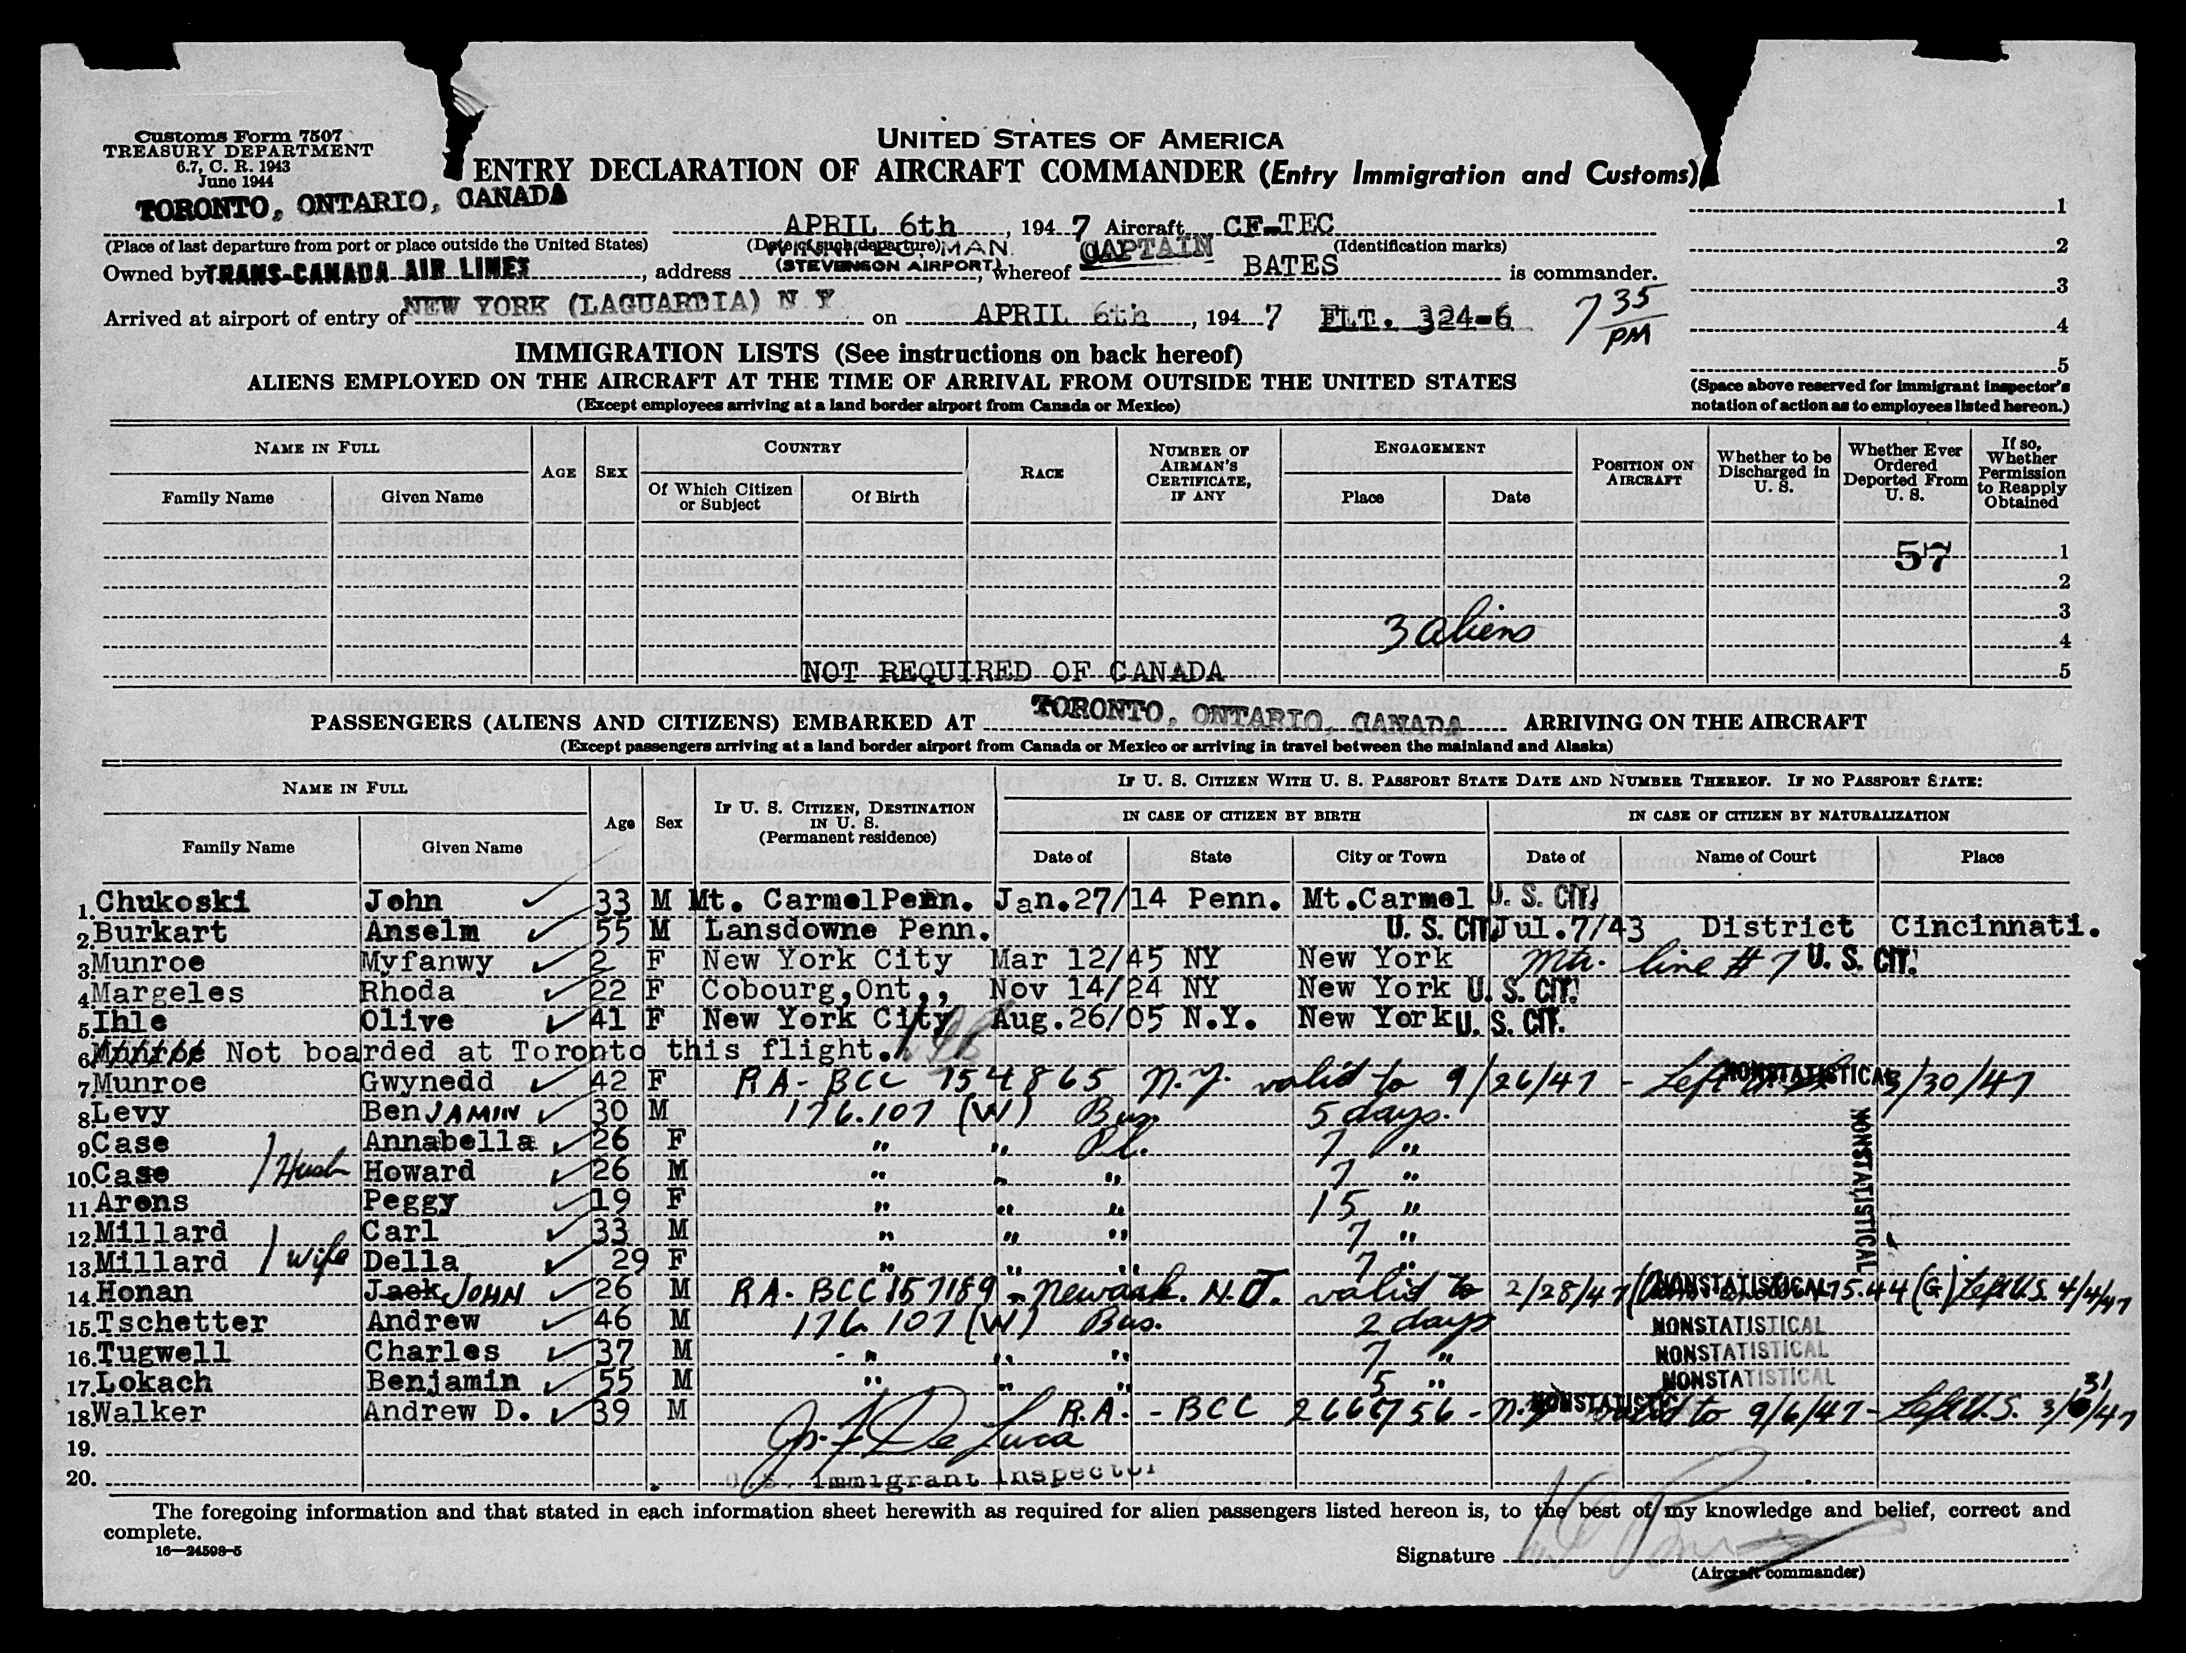 Customs Form 7507
TREASURY DEPARTMENT
6.7, C. R. 1943
June 1944
UNITED STATES OF AMERICA
ENTRY DECLARATION OF AIRCRAFT COMMANDER (Entry Immigration and Customs)
TORONTO, ONTARIO, CANADA
APRIL 6th, 1947 Aircraft CF-TEC
(Place of last departure from port or place outside the United States) (Date of such departure) (Identification marks)
WINNIPEG, MAN.
(STEVENSON AIRPORT)
Owned by TRANS-CANADA AIR LINES, address whereof CAPTAIN BATES is commander.
Arrived at airport of entry of NEW YORK (LAGUARDIA) N Y on APRIL 6th, 1947 FLT. 324-6 7 35 PM
1
2
3
4
5
(Space above reserved for immigrant inspector's
notation of action as to employees listed hereon.)
IMMIGRATION LISTS (See instructions on back hereof)
ALIENS EMPLOYED ON THE AIRCRAFT AT THE TIME OF ARRIVAL FROM OUTSIDE THE UNITED STATES
(Except employees arriving at a land border airport from Canada or Mexico)
NAME IN FULL
Family Name Given Name
AGE SEX
COUNTRY
Of Which Citizen or Subject Of Birth
RACE
NUMBER OF AIRMAN'S CERTIFICATE, IF ANY
ENGAGEMENT
Place Date
POSITION ON AIRCRAFT
Whether to be Discharged in U. S.
Whether Ever Ordered Deported From U. S.
If so, Whether Permission to Reapply Obtained
57 1
2
3
3 aliens 4
NOT REQUIRED OF CANADA 5
PASSENGERS (ALIENS AND CITIZENS) EMBARKED AT TORONTO, ONTARIO, CANADA ARRIVING ON THE AIRCRAFT
(Except passengers arriving at a land border airport from Canada or Mexico or arriving in travel between the mainland and Alaska)
NAME IN FULL
Family Name Given Name
Age Sex
IF U. S. CITIZEN, DESTINATION IN U. S. (Permanent residence)
IF U. S. CITIZEN WITH U. S. PASSPORT STATE DATE AND NUMBER THEREOF. IF NO PASSPORT STATE:
IN CASE OF CITIZEN BY BIRTH IN CASE OF CITIZEN BY NATURALIZATION
Date of State City or Town Date of Name of Court Place
1. Chukoski John 33 M Mt. Carmel Penn. Jan.27/14 Penn. Mt.Carmel U. S. CIT.
2. Burkart Anselm 55 M Lansdowne Penn. U. S. CIT. Jul.7/43 District Cincinnati.
3. Munroe Myfanwy 2 F New York City Mar 12/45 NY New York Mtr. line # 7 U. S. CIT.
4. Margeles Rhoda 22 F Cobourg,Ont,, Nov 14/24 NY New York U. S. CIT.
5. Ihle Olive 41 F New York City Aug.26/05 N.Y. New York U. S. CIT.
6. Munroe Not boarded at Toronto this flight.
7. Munroe Gwynedd 42 F RA-BCC 154865 N.Y. valid to 9/26/47 - Left U.S. 3/30/47 NONSTATISTICAL
8. Levy BenJAMIN 30 M 176.107 (W) Bus. 5 days.
9. Case Annabella 26 F " " Pl. 7 "
10. Case / Husb Howard 26 M " " " 7 "
11. Arons Peggy 19 F " " " 15 "
12. Millard Carl 33 M " " " 7 "
13. Millard / wife Della 29 F " " " 7 "
NONSTATISTICAL
14. Honan Jack JOHN 26 M RA-BCC 157189 - Newark. N.J. valid to 2/28/47 NONSTATISTICAL 175.44 (G) Left U.S. 4/4/47
15. Tschetter Andrew 46 M 176.107 (W) Bus. 2 days NONSTATISTICAL
16. Tugwell Charles 37 M " " " 7 " NONSTATISTICAL
17. Lokach Benjamin 55 M " " " 5 " NONSTATISTICAL
18. Walker Andrew D. 39 M R.A. - BCC 2666756 - N.Y. valid to 9/6/47 - Left U.S. 3/31/47 NONSTATISTICAL
19.
20. U.S. Immigrant Inspector
The foregoing information and that stated in each information sheet herewith as required for alien passengers listed hereon is, to the best of my knowledge and belief, correct and
complete.
16—24598-5
Signature
(Aircraft commander)